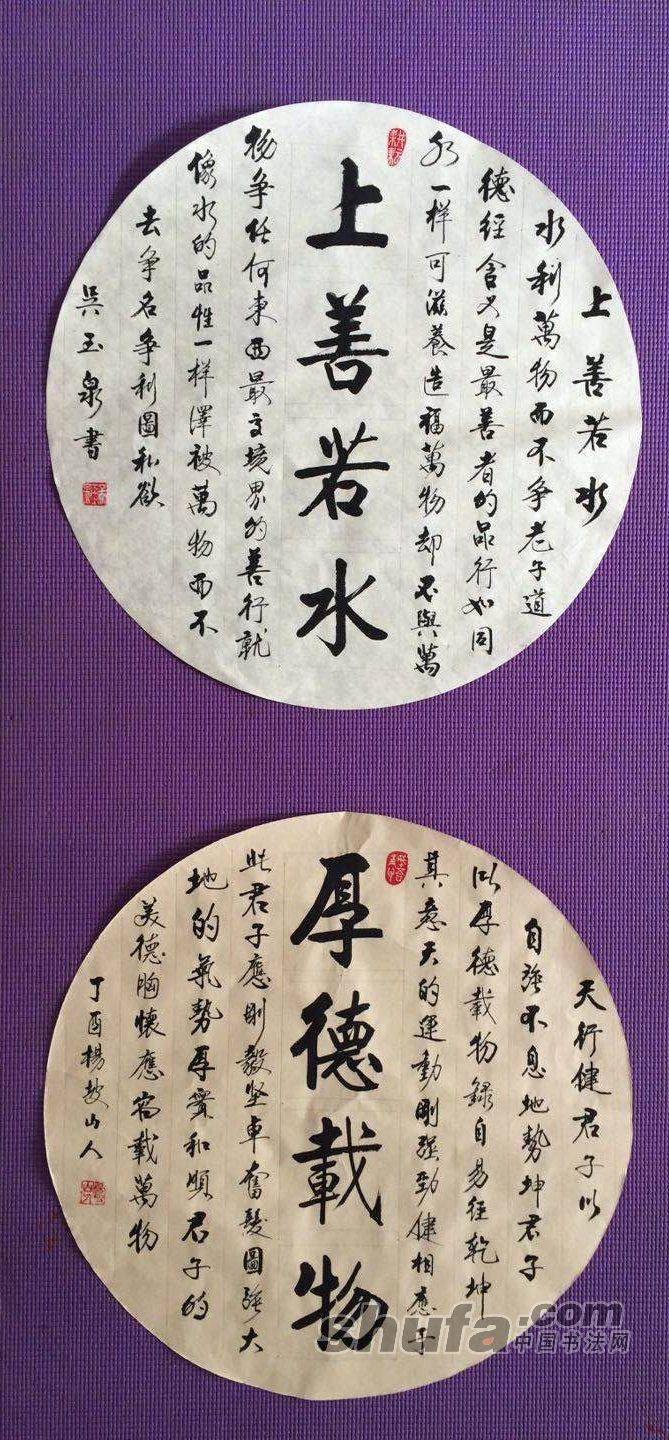 上善若水
水利萬物而不争老子道
德经含义是最善者的品行如同
水一样可滋养造福萬物却不與萬
上善若水
物争任何東西最高境界的善行就
像水的品性一样澤被萬物而不
去争名争利圖私欲
吴玉泉書
天行健君子以
自强不息地勢坤君子
以厚德載物錄自易经乾坤
其意天的運動剛强勁健相應于
厚德載物
此君子應剛毅坚卓奮發圖强大
地的氣勢厚實和順君子的
美德胸懷應容載萬物
丁酉楊坡山人
shufa.com
中国书法网